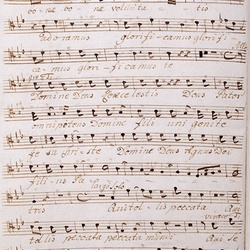 bone bone voluntatis
adoramus glorificamus glorifi
camus glorificamus te
Domine Deus Rex celestis Deus Pater
omnipotens Domine fili unigenite
Domine Deus Agnus Dei
filius Pa
largo
tris Qui tollis peccata
tollis peccata peccata mundi